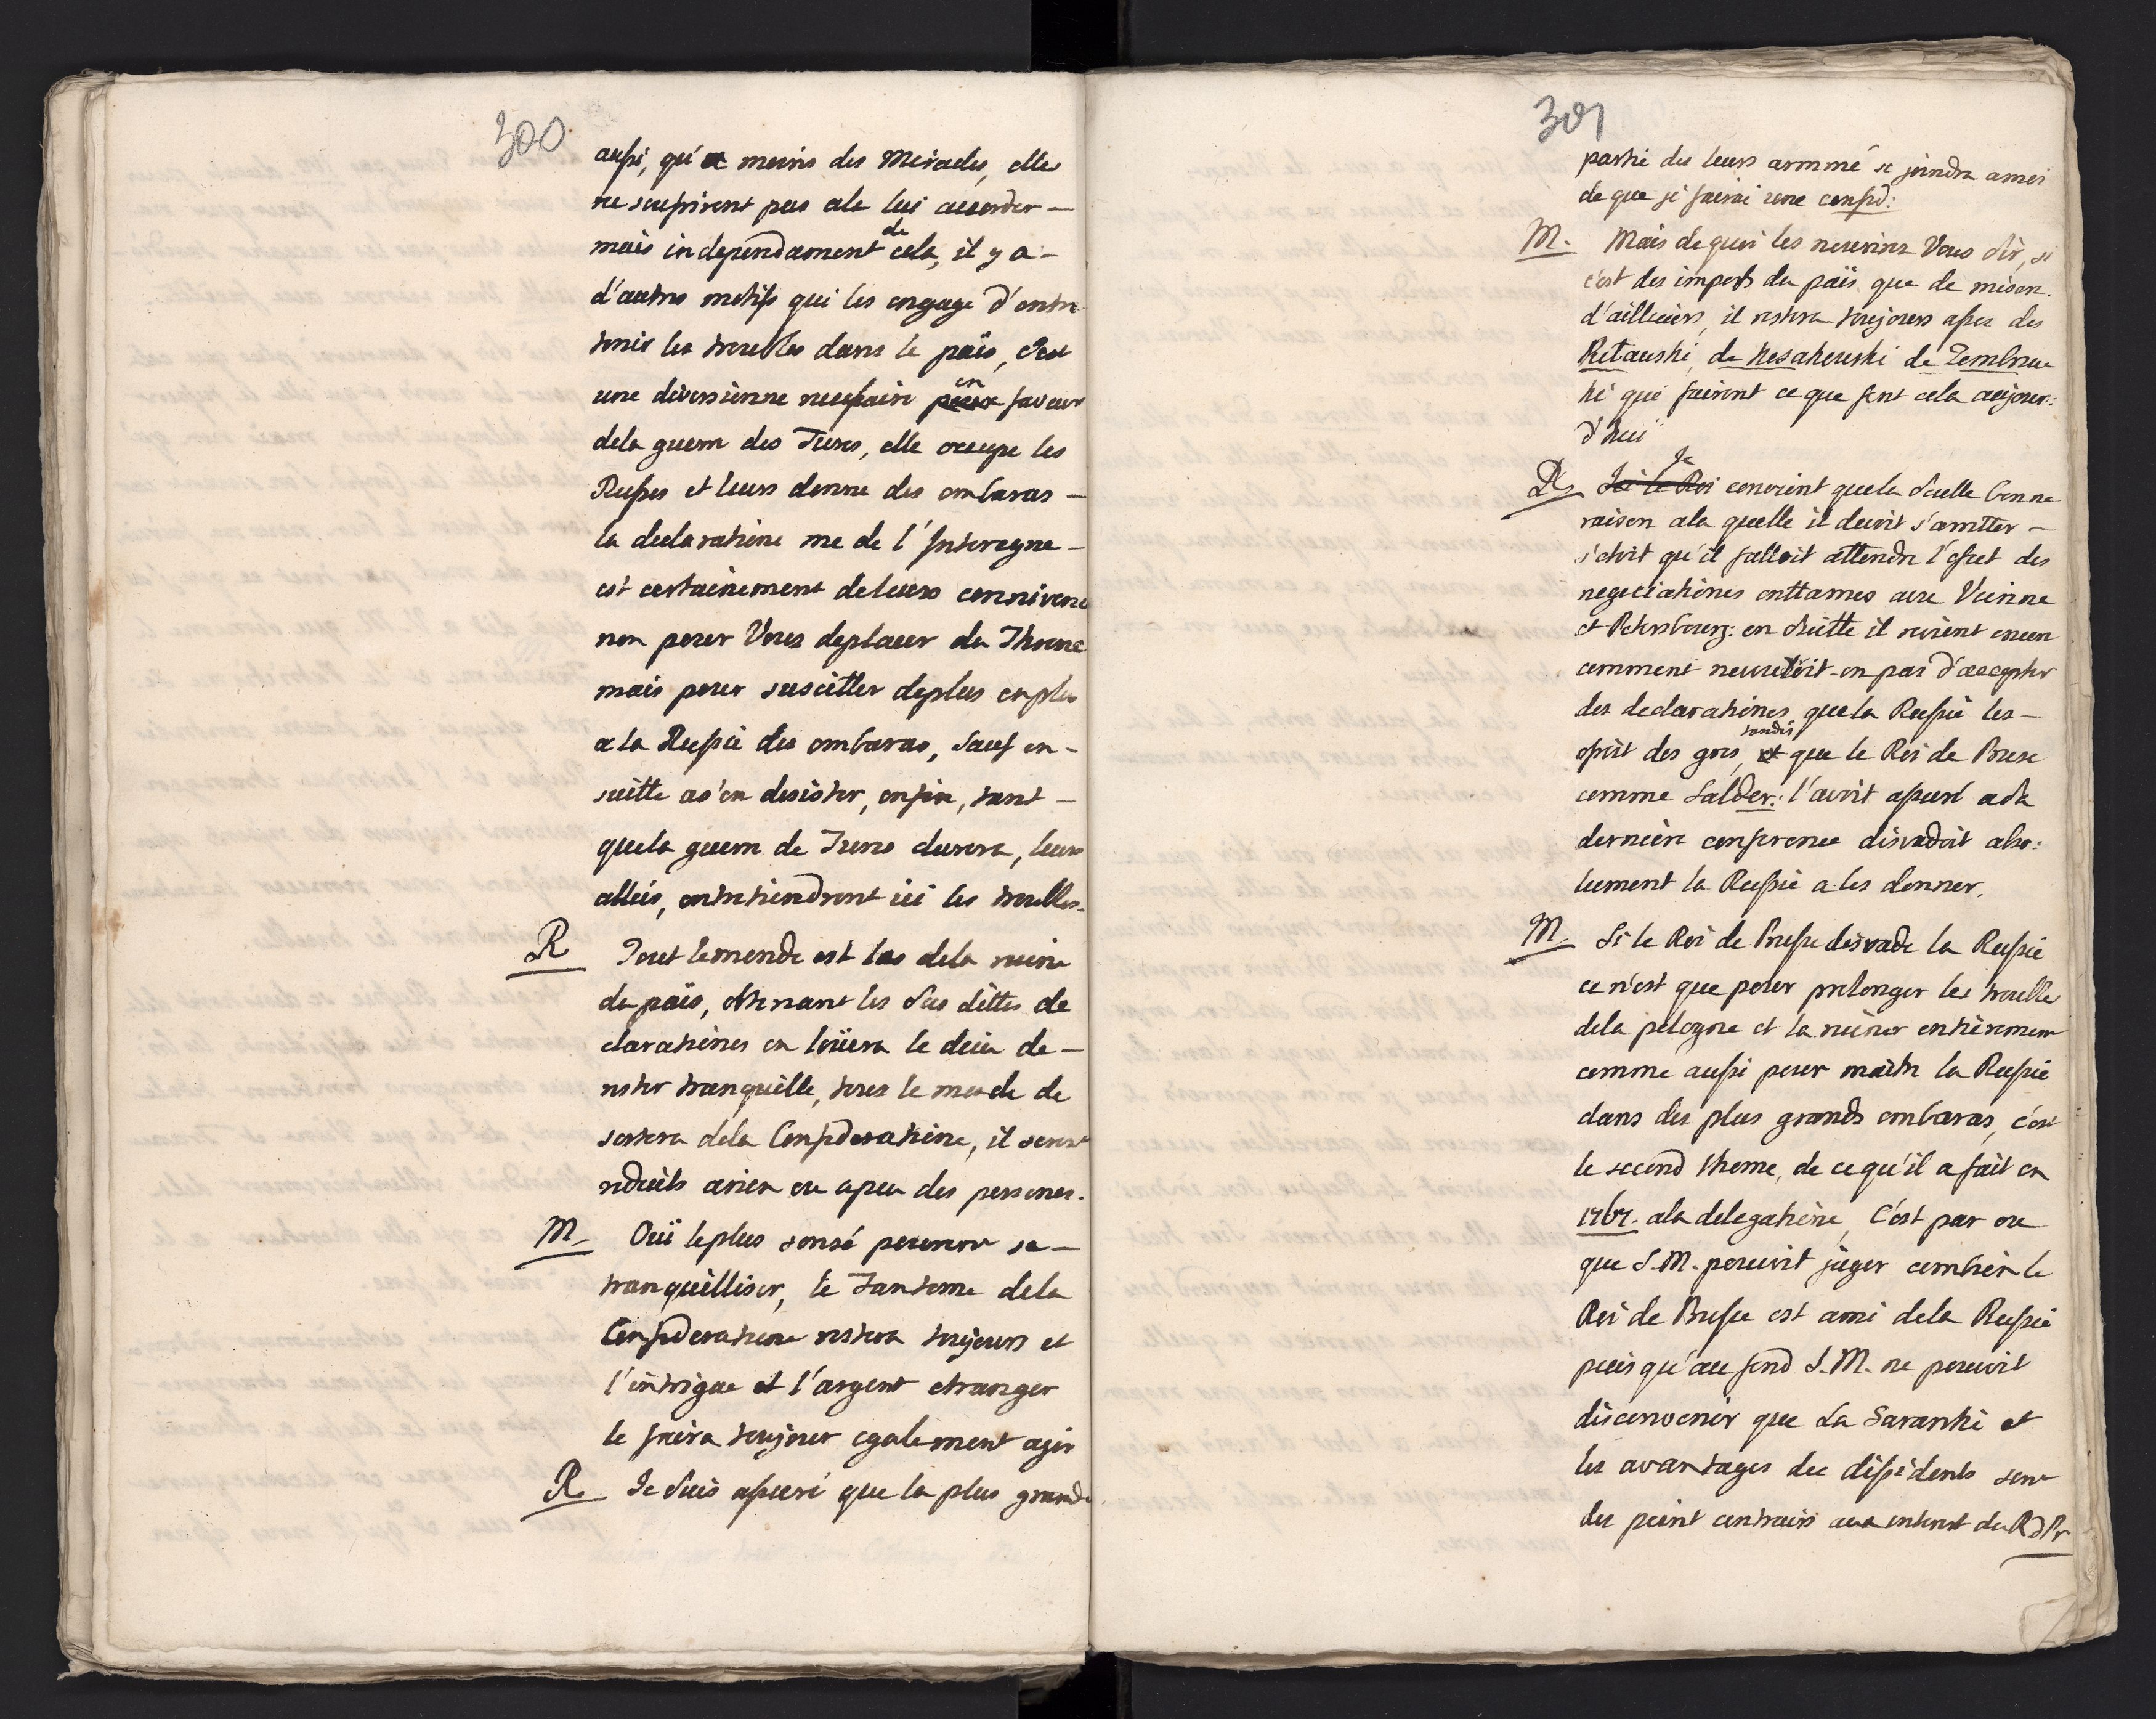 300
aussi, qu'a moins des Miracles, elles
ne soufriront pas de la lui accorder –
mais independament de cela, il y a –
d'autres motifs qui les engage d'entre
tenir les troubles dans le païs, C'est
une diversionne necessaire en faveur
dela guerre des Turcs, elle occupe les
Russes et leurs donne des ambaras –
la declaratione me de l'Interegne –
est certainement de leurs connivence
non pour Vous deplacer du Throne
mais pour suscitter deplus en plus
a la Russie des ambaras, Sauf en –
suitte as'en desister, enfin, tant –
quela guerre de Turcs durera, leurs
alliés, entretiendront ici les troubles.
R Tout lemonde est las dela ruine
du païs, obtenant les Sus dittes de
claratiônes on loüera le dieu de –
rester tranquille, tous le monde de
sertera dela Confœderatione, il seront
reduits arien ou apeu des personnes.
M. Oui leplus sensé pouront se –
tranquilliser, le Fantome dela
Confœderatione restera toujours et
l'intrigue et l'argent etranger
le faira toujour egalement agir
R Je Suis assuré que la plus grande
301
partie du leurs armmé se joindra amoi
de que je fairai une confœd:
M. Mais dequoi les nourirez Vous Sir, si
c'est des impots du païs que de miser.
d'ailleurs, il restera toujours assez des
Kitauski, de Kosakouski de Zembrus
ki qui fairont ce que font cela aujour:
d'hui
R Je convient quela Seulle bonne
raison ala quelle il devoit s'arretter –
s'etoit qu'il falloit attendre l'effet des
negotiatiônes enttamés avec Vienne
et Petersbourg: en suitte il revient encor
comment nevoudroit-on pas d'accepter
des declaratiônes, quela Russie les –
offrit des gres, tandis que le Roi de Prusse
comme Salder: l'avoit assuré ada
derniere conference disvadoit abso:
lument la Russie a les donner.
M Si le Roi de Prusse disvade la Russie
ce n'est que pour prolonger les trouble
dela pologne et la ruiner entierement
comme aussi pour maitre la Russie
dans des plus grands ambaras, c'est
le second theme, de ce qu'il a fait en
1767. ala delegatiône, C'est par ou
que S. M. pouvoit juger combien le
Roi de Prusse est ami dela Russie
puis qu'au fond S. M. ne pouvoit
disconvenir que La Garantie et
les avantages des dissidents sont
des point contraire aux interest du R d Pr